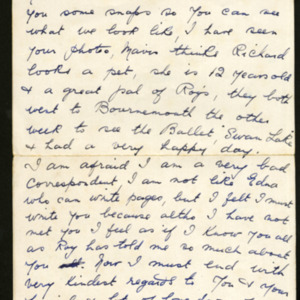 you some snaps so you can see
what we look like, I have seen
your photos, Mavis thinks Richard
looks a pet, she is 12 years old
& a great pal of Roys, they both
went to Bournemouth the other
week to see the Ballet, Swan Lake
& had a very happy day.
I am afraid I am a very bad
Correspondent, I am not like Edna
who can write pages, but I felt I must
write you because altho I have not
met you I feel as if I know you all
as Ray has told me so much about
you Now I must end with
very kindest regards to you & your